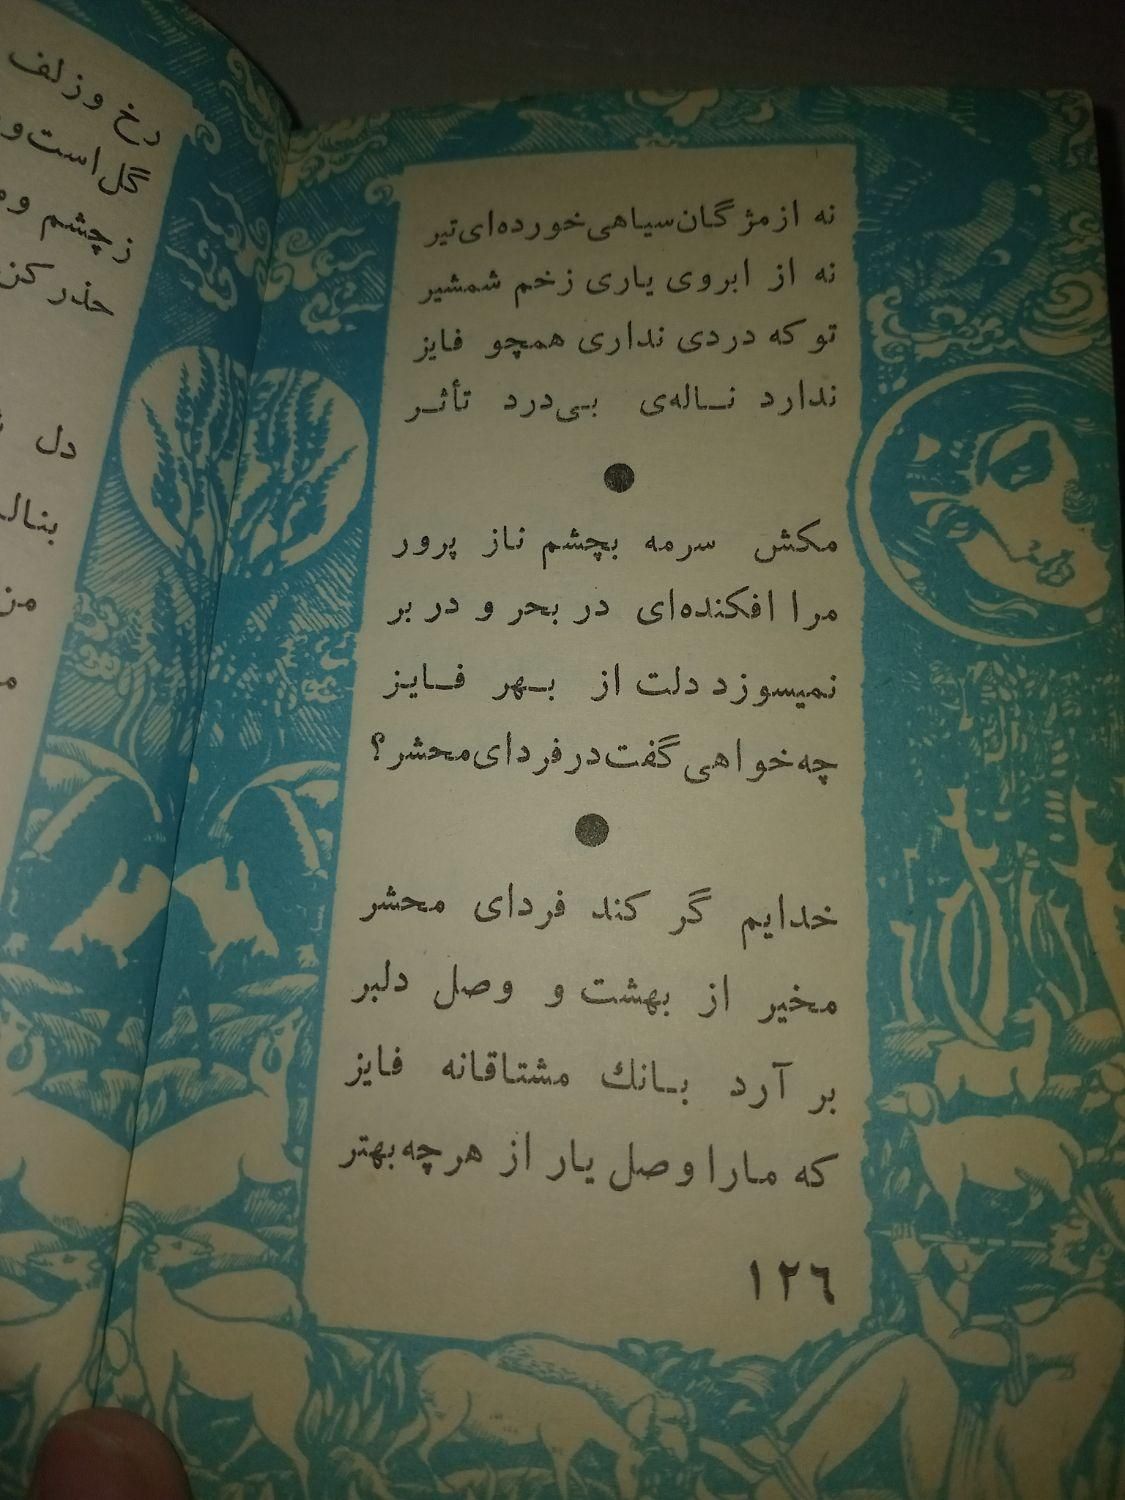 نه از مژگان سیاهی خورده‌ای تیر
نه از ابروی یاری زخم شمشیر
تو که دردی نداری همچو فایز
ندارد نـاله‌ی بـی‌درد تأثـر
مکش سرمه بچشم ناز پرور
مرا افکنده‌ای در بحر و در بر
نمیسوزد دلت از بـهر فـایـز
چه خواهی گفت در فردای محشر؟
خدایم گر کند فردای محشر
مخیر از بهشت و وصل دلبر
بر آرد بـانك مشتاقانه فایز
که مارا وصل یار از هر چه بهتر
١٢٦
رخ و زلف
گل است و
ز چشم و
حذر کن
دل
بنال
من